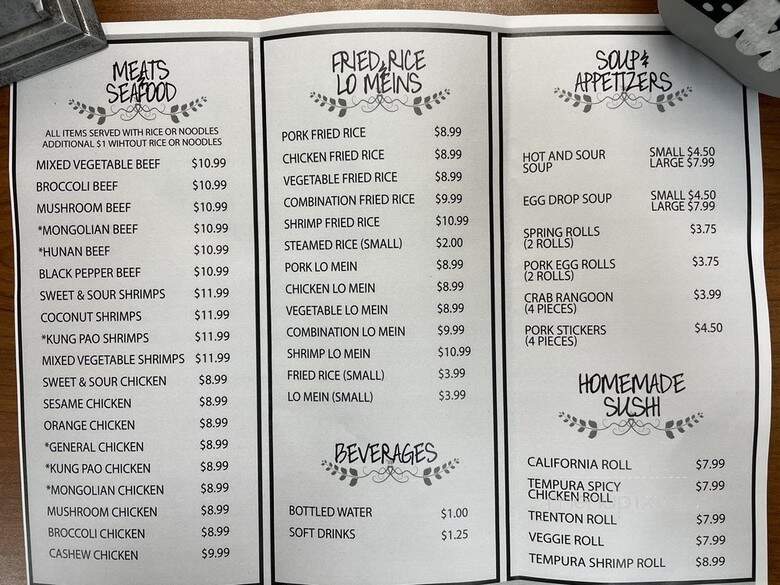 MEATS
&
SEAFOOD
ALL ITEMS SERVED WITH RICE OR NOODLES
ADDITIONAL $1 WIHTOUT RICE OR NOODLES
MIXED VEGETABLE BEEF $10.99
BROCCOLI BEEF $10.99
MUSHROOM BEEF $10.99
*MONGOLIAN BEEF $10.99
*HUNAN BEEF $10.99
BLACK PEPPER BEEF $10.99
SWEET & SOUR SHRIMPS $11.99
COCONUT SHRIMPS $11.99
*KUNG PAO SHRIMPS $11.99
MIXED VEGETABLE SHRIMPS $11.99
SWEET & SOUR CHICKEN $8.99
SESAME CHICKEN $8.99
ORANGE CHICKEN $8.99
*GENERAL CHICKEN $8.99
*KUNG PAO CHICKEN $8.99
*MONGOLIAN CHICKEN $8.99
MUSHROOM CHICKEN $8.99
BROCCOLI CHICKEN $8.99
CASHEW CHICKEN $9.99
FRIED RICE
&
LO MEINS
PORK FRIED RICE $8.99
CHICKEN FRIED RICE $8.99
VEGETABLE FRIED RICE $8.99
COMBINATION FRIED RICE $9.99
SHRIMP FRIED RICE $10.99
STEAMED RICE (SMALL) $2.00
PORK LO MEIN $8.99
CHICKEN LO MEIN $8.99
VEGETABLE LO MEIN $8.99
COMBINATION LO MEIN $9.99
SHRIMP LO MEIN $10.99
FRIED RICE (SMALL) $3.99
LO MEIN (SMALL) $3.99
BEVERAGES
BOTTLED WATER $1.00
SOFT DRINKS $1.25
SOUP &
APPETIZERS
HOT AND SOUR SMALL $4.50
SOUP LARGE $7.99
EGG DROP SOUP SMALL $4.50
LARGE $7.99
SPRING ROLLS $3.75
(2 ROLLS)
PORK EGG ROLLS $3.75
(2 ROLLS)
CRAB RANGOON $3.99
(4 PIECES)
PORK STICKERS $4.50
(4 PIECES)
HOMEMADE
SUSHI
CALIFORNIA ROLL $7.99
TEMPURA SPICY $7.99
CHICKEN ROLL
TRENTON ROLL $7.99
VEGGIE ROLL $7.99
TEMPURA SHRIMP ROLL $8.99